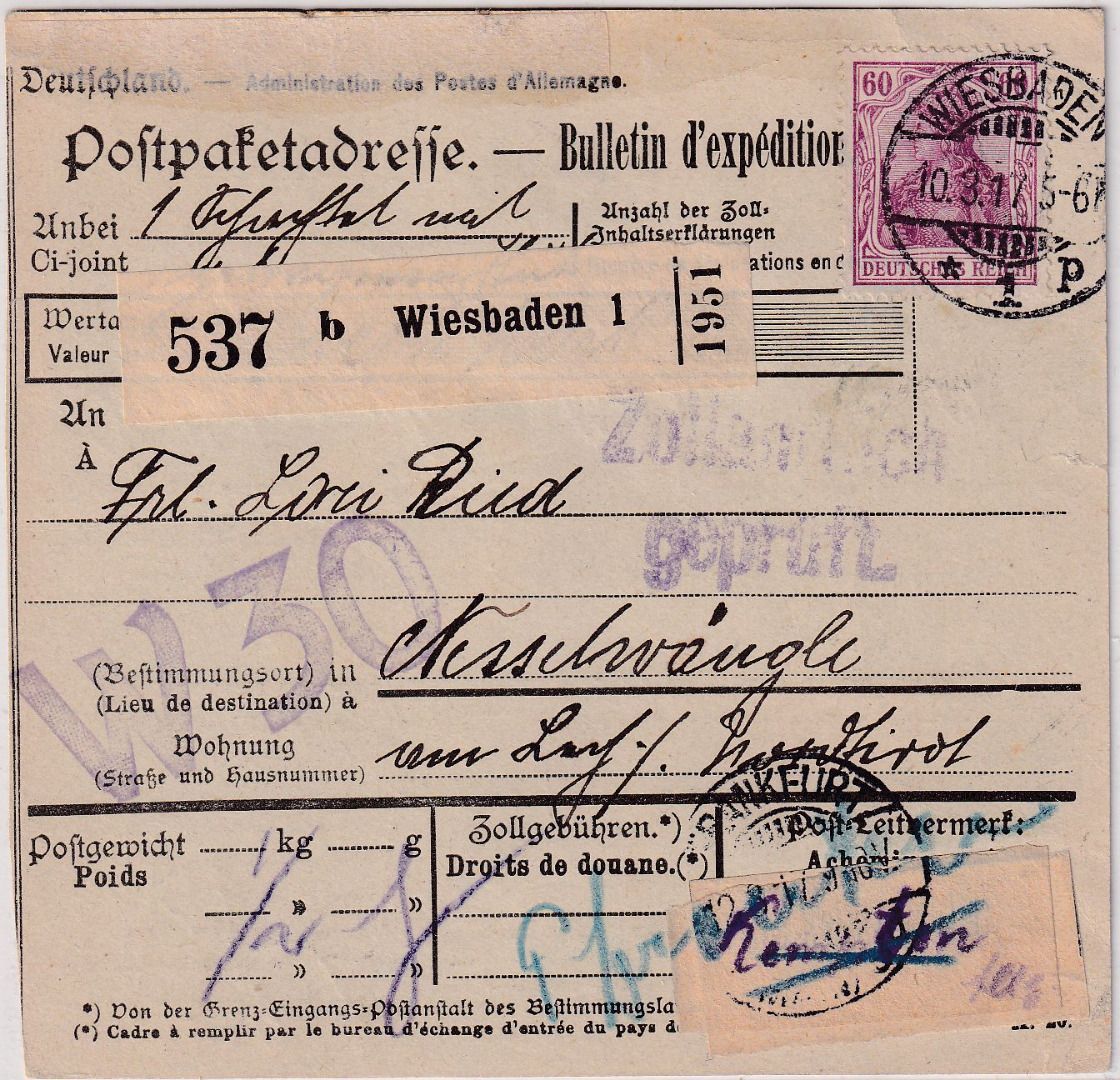 Deutschland. — Administration des Postes d'Allemagne.
Postpaketadresse. — Bulletin d'expédition
60 60
DEUTSCHES REICH
WIESBADEN
10.3.17 5-6N
* 1 P
Anbei 1 Schachtel mit
Ci-joint
Anzahl der Zoll-
Inhaltserklärungen
Werta
Valeur
537 b Wiesbaden 1 1951
An
À
Zollamtlich
geprüft
Frl. Lori Ried
W 30
(Bestimmungsort) in Nesselwängle
(Lieu de destination) à
Wohnung am Lech / Nordtirol
(Straße und Hausnummer)
FRANKFURT
Postgewicht kg g
Poids
» »
» »
Zollgebühren.*)
Droits de douane.(*)
Post-Leitvermerk:
Kempten
*) Von der Grenz-Eingangs-Postanstalt des Bestimmungsla
(*) Cadre à remplir par le bureau d'échange d'entrée du pays d